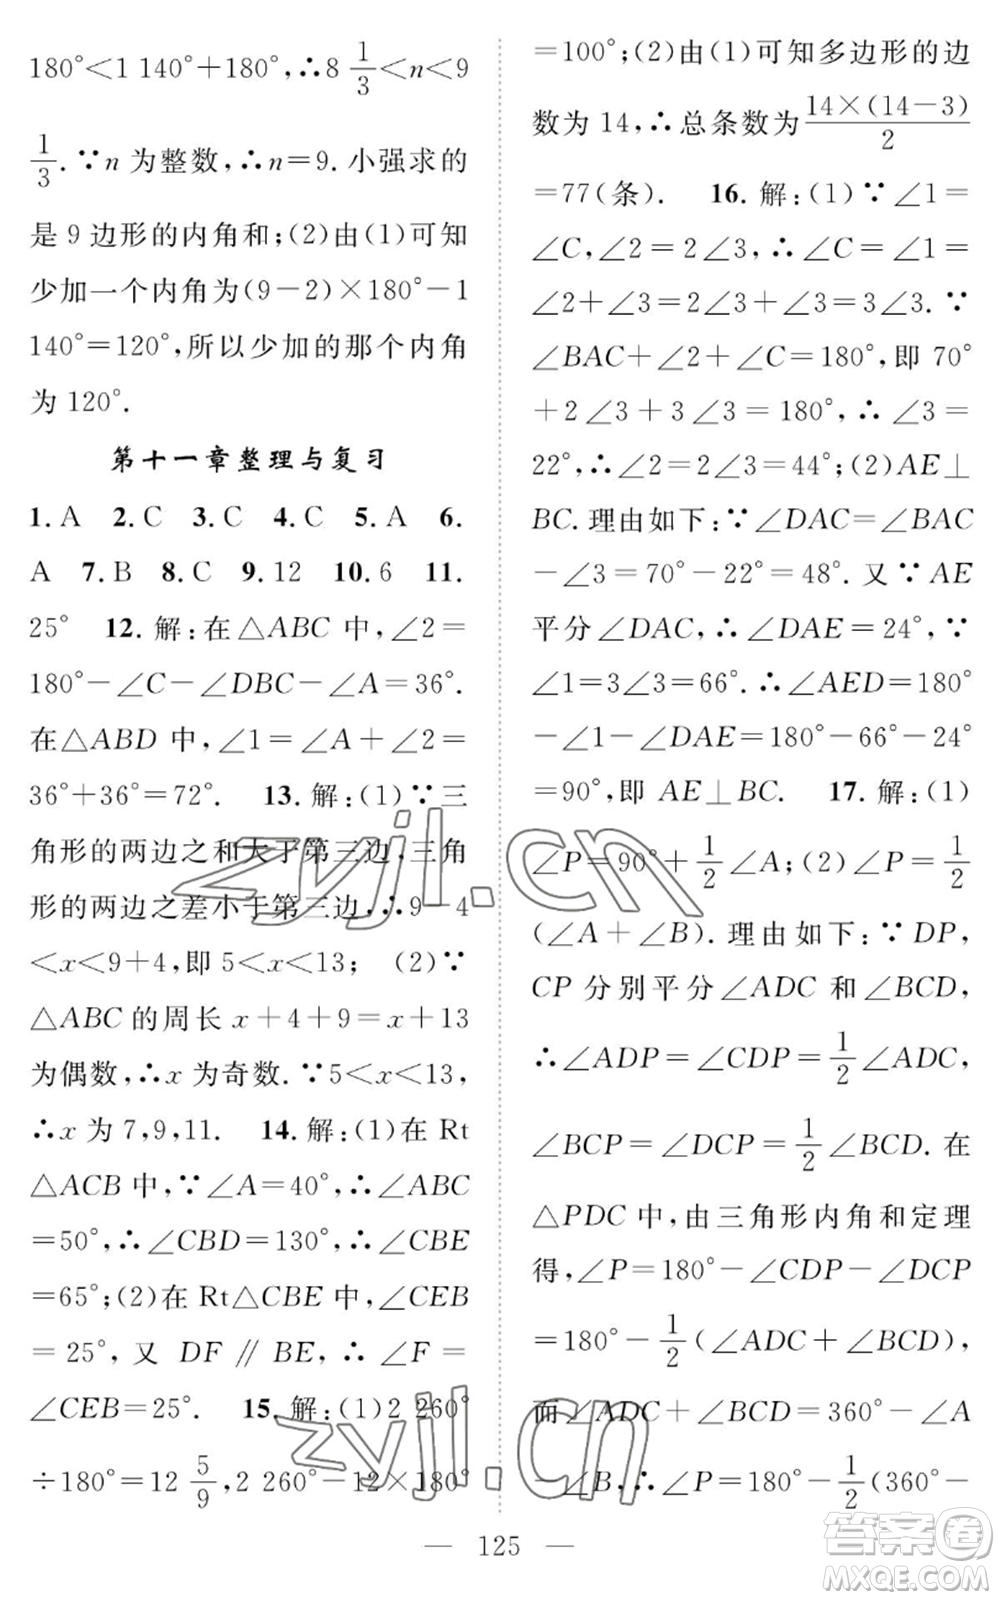 180°<1 140°+180°,∴8 1/3<n<9
1/3.∵n 为整数,∴n=9.小强求的
是 9 边形的内角和;(2)由(1)可知
少加一个内角为(9-2)×180°-1
140°=120°,所以少加的那个内角
为 120°.
第十一章整理与复习
1.A 2.C 3.C 4.C 5.A 6.
A 7.B 8.C 9.12 10.6 11.
25° 12.解:在△ABC 中,∠2=
180°-∠C-∠DBC-∠A=36°.
在△ABD 中,∠1=∠A+∠2=
36°+36°=72°. 13.解:(1)∵三
角形的两边之和大于第三边,三角
形的两边之差小于第三边,∴9-4
<x<9+4,即 5<x<13; (2)∵
△ABC 的周长 x+4+9=x+13
为偶数,∴x 为奇数.∵5<x<13,
∴x 为 7,9,11. 14.解:(1)在 Rt
△ACB 中,∵∠A=40°,∴∠ABC
=50°,∴∠CBD=130°,∴∠CBE
=65°;(2)在 Rt△CBE 中,∠CEB
=25°,又 DF∥BE,∴∠F=
∠CEB=25°. 15.解:(1)2 260°
÷180°=12 5/9,2 260°-12×180°
=100°;(2)由(1)可知多边形的边
数为 14,∴总条数为14×(14-3)/2
=77(条). 16.解:(1)∵∠1=
∠C,∠2=2∠3,∴∠C=∠1=
∠2+∠3=2∠3+∠3=3∠3.∵
∠BAC+∠2+∠C=180°,即 70°
+2∠3+3∠3=180°,∴∠3=
22°,∴∠2=2∠3=44°;(2)AE⊥
BC.理由如下:∵∠DAC=∠BAC
-∠3=70°-22°=48°.又∵AE
平分∠DAC,∴∠DAE=24°,∵
∠1=3∠3=66°.∴∠AED=180°
-∠1-∠DAE=180°-66°-24°
=90°,即 AE⊥BC. 17.解:(1)
∠P=90°+1/2∠A;(2)∠P=1/2
(∠A+∠B).理由如下:∵DP,
CP 分别平分∠ADC 和∠BCD,
∴∠ADP=∠CDP=1/2∠ADC,
∠BCP=∠DCP=1/2∠BCD.在
△PDC 中,由三角形内角和定理
得,∠P=180°-∠CDP-∠DCP
=180°-1/2(∠ADC+∠BCD),
而∠ADC+∠BCD=360°-∠A
-∠B,∴∠P=180°-1/2(360°-
— 125 —
zyjl.cn
zyjl.cn
答案圈
MXQE.COM